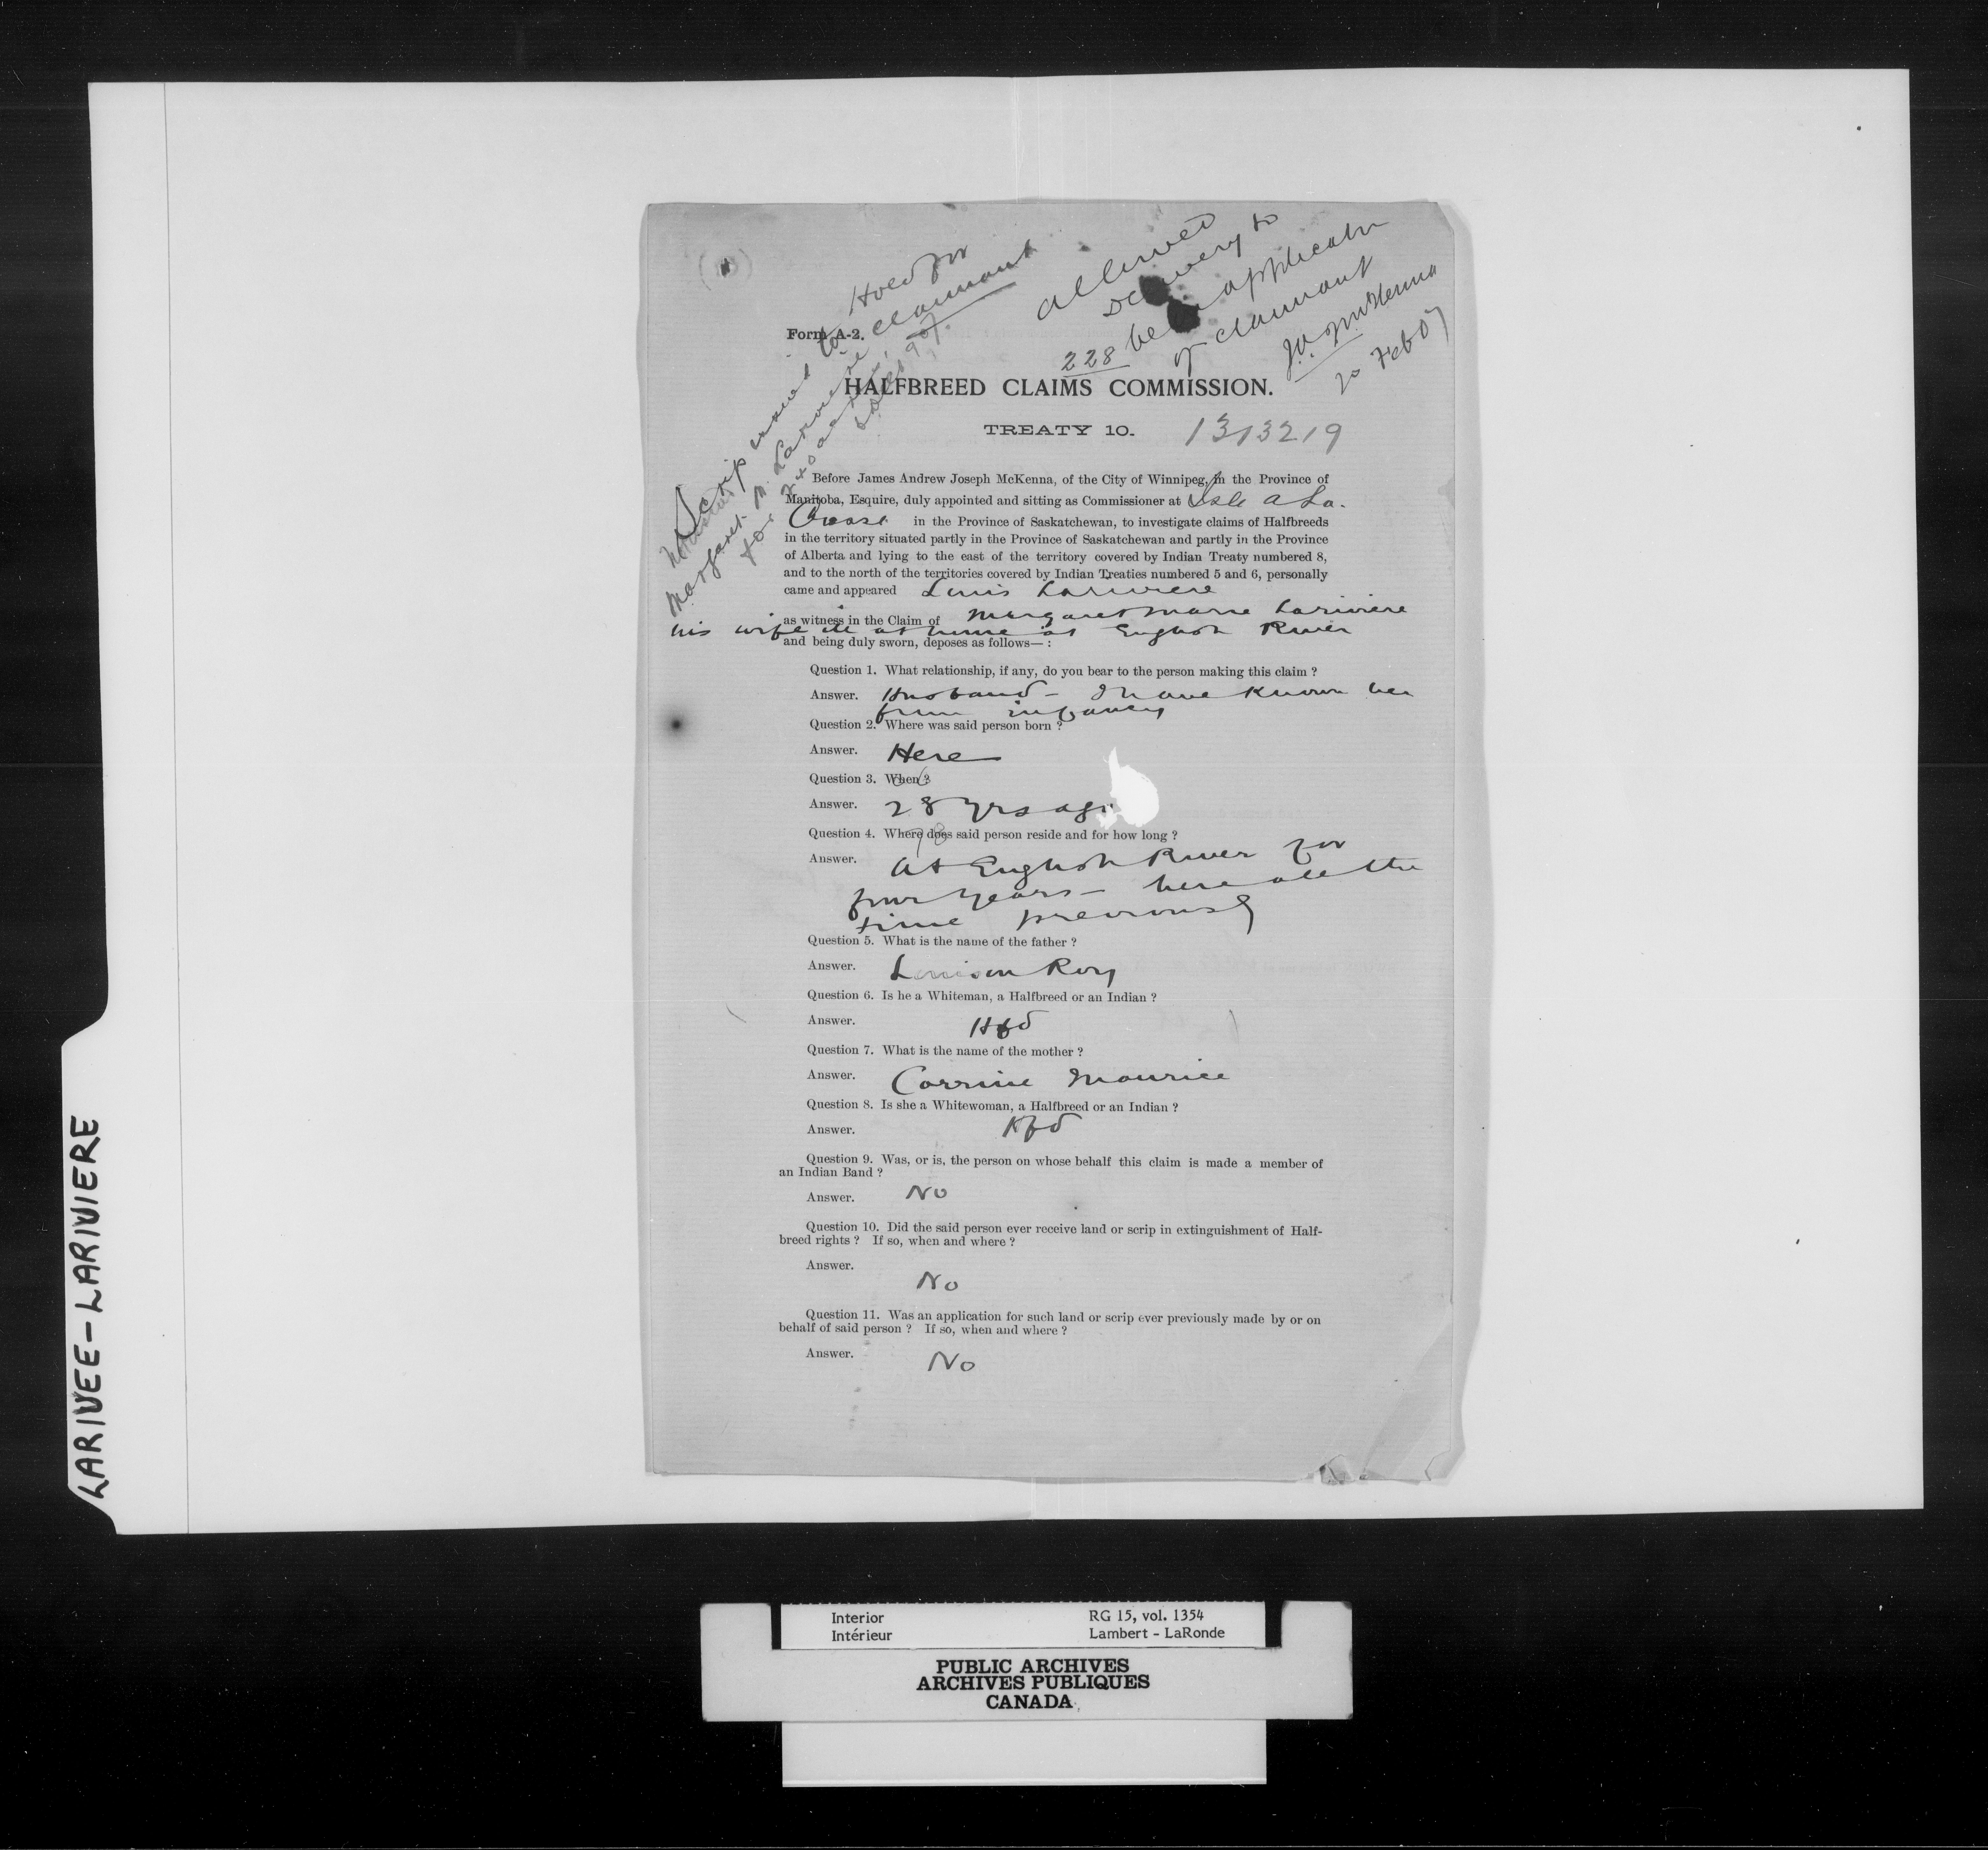 Hold for
claimant
allowed
Delivery to
be on application
of claimant
J.A.J. McKenna
20 Feb 07
Scrip issued to
Margaret M. Lariviere
for 240 acres,
Form A-2.
228
HALFBREED CLAIMS COMMISSION.
TREATY 10.
1313219
Before James Andrew Joseph McKenna, of the City of Winnipeg, in the Province of
Manitoba, Esquire, duly appointed and sitting as Commissioner at Isle a La
Crosse in the Province of Saskatchewan, to investigate claims of Halfbreeds
in the territory situated partly in the Province of Saskatchewan and partly in the Province
of Alberta and lying to the east of the territory covered by Indian Treaty numbered 8,
and to the north of the territories covered by Indian Treaties numbered 5 and 6, personally
came and appeared Louis Lariviere
as witness in the Claim of Margaret Marie Lariviere
his wife ill at home at English River
and being duly sworn, deposes as follows—:
Question 1. What relationship, if any, do you bear to the person making this claim ?
Answer. Husband - I have known her
from infancy
Question 2. Where was said person born ?
Answer. Here
Question 3. When ?
06
Answer. 28 yrs ago
78
Question 4. Where does said person reside and for how long ?
Answer. At English River for
four years - here all the
time previously
Question 5. What is the name of the father ?
Answer. Louison Roy
Question 6. Is he a Whiteman, a Halfbreed or an Indian ?
Answer. Hfbd
Question 7. What is the name of the mother ?
Answer. Corrine Maurice
Question 8. Is she a Whitewoman, a Halfbreed or an Indian ?
Answer. Hfbd
Question 9. Was, or is, the person on whose behalf this claim is made a member of
an Indian Band ?
Answer. No
Question 10. Did the said person ever receive land or scrip in extinguishment of Half-
breed rights ? If so, when and where ?
Answer.
No
Question 11. Was an application for such land or scrip ever previously made by or on
behalf of said person ? If so, when and where ?
Answer.
No
LARIVEE-LARIVIERE
Interior RG 15, vol. 1354
Intérieur Lambert - LaRonde
PUBLIC ARCHIVES
ARCHIVES PUBLIQUES
CANADA